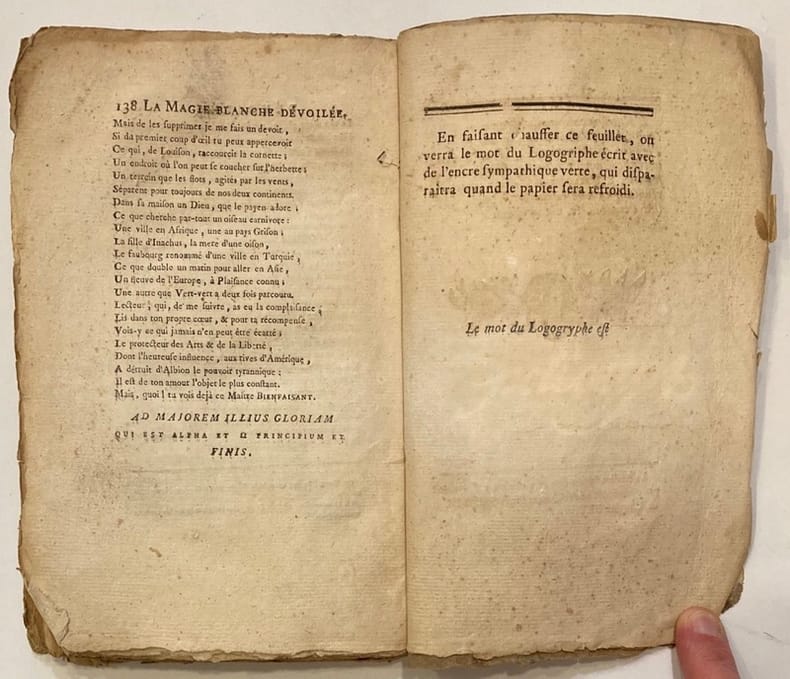 138 LA MAGIE BLANCHE DÉVOILÉE,
Mais de les supprimer je me fais un devoir,
Si da premier coup d'œil tu peux appercevoir
Ce qui, de Louison, raccourcit la cornette;
Un endroit où l'on peut se coucher sur l'herbette;
Un terrein que les flots, agités par les vents,
Séparent pour toujours de nos deux continents.
Dans sa maison un Dieu, que le payen adore;
Ce que cherche par-tout un oiseau carnivore:
Une ville en Afrique, une au pays Grison;
La fille d'Inachus, la mere d'une oison,
Le fauxbourg renommé d'une ville en Turquie,
Ce que double un matin pour aller en Asie,
Un fleuve de l'Europe, à Plaisance connu;
Une autre que Vert-vert a deux fois parcouru.
Lecteur, qui, de me suivre, as eu la complaisance,
Lis dans ton propre cœur, & pour ta récompense,
Vois-y ce qui jamais n'en peut être écarté;
Le protecteur des Arts & de la Liberté,
Dont l'heureuse influence, aux rives d'Amérique,
A détruit d'Albion le pouvoir tyrannique:
Il est de ton amour l'objet le plus constant.
Mais, quoi! tu vois déjà ce Maître BIENFAISANT.
AD MAJOREM ILLIUS GLORIAM
QUI EST ALPHA ET Ω PRINCIPIUM ET
FINIS.
En faisant chauffer ce feuillet, on
verra le mot du Logogriphe écrit avec
de l'encre sympathique verte, qui dispa-
raitra quand le papier sera refroidi.
Le mot du Logogryphe est